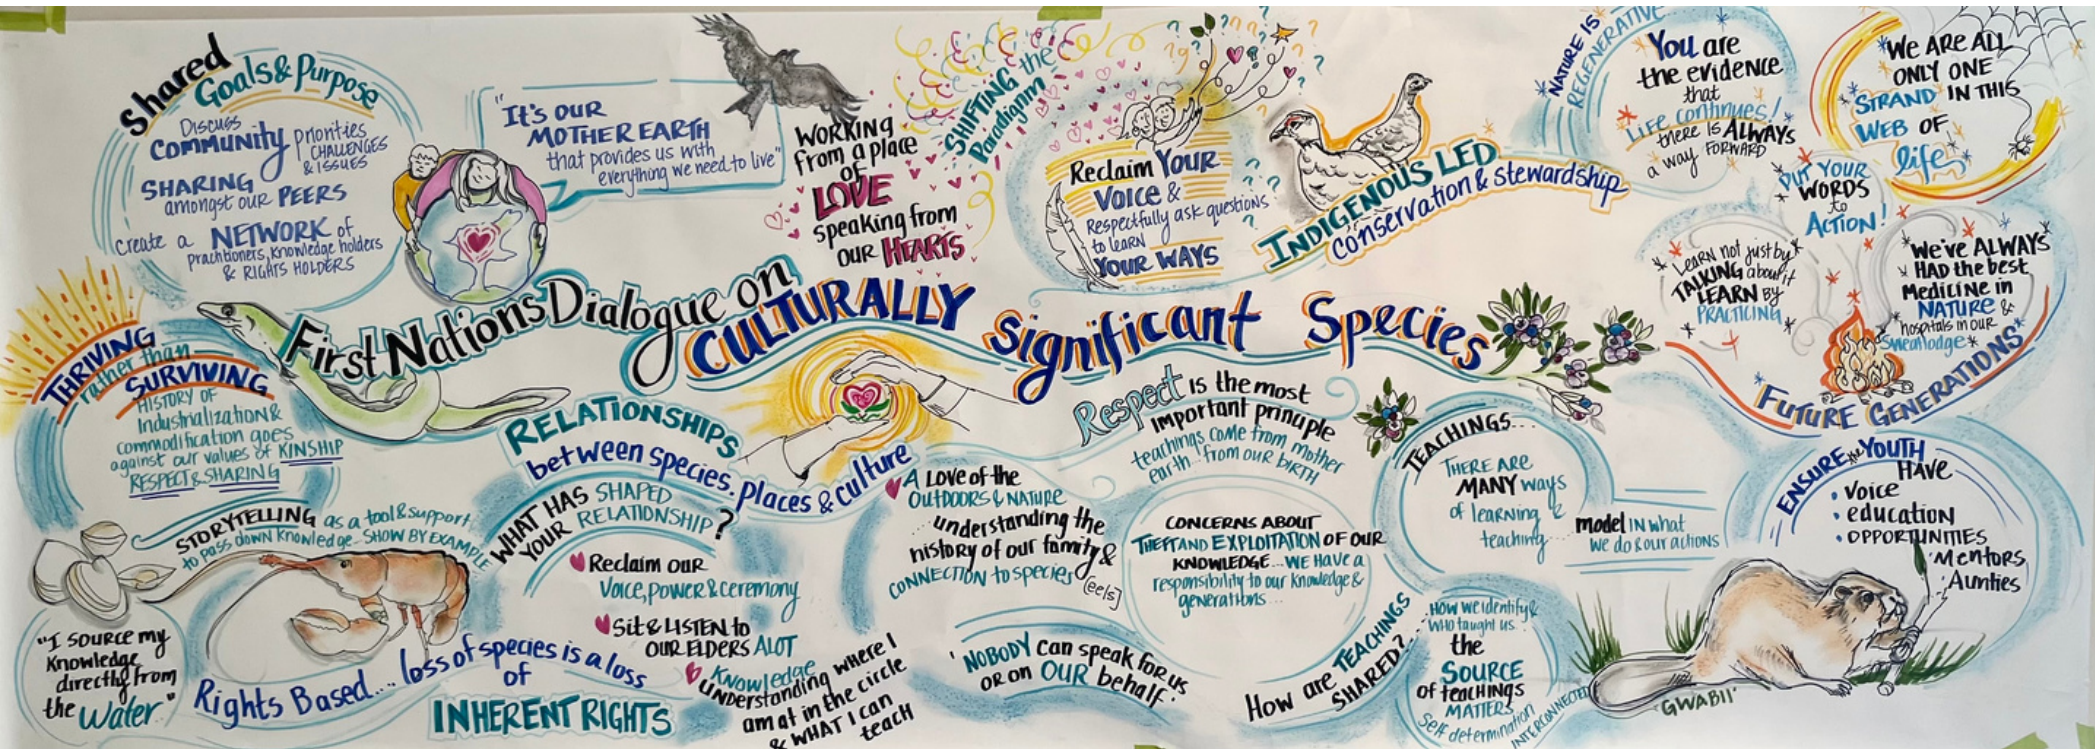 Shared
Goals & Purpose
Discuss
Community priorities
CHALLENGES
& ISSUES
SHARING
amongst our PEERS
create a NETWORK of
practitioners, knowledge holders
& RIGHTS HOLDERS
"It's our
MOTHER EARTH
that provides us with
everything we need to live"
WORKING
from a place
of
LOVE
speaking from
our HEARTS
SHIFTING the
Paradigm
Reclaim YOUR
VOICE &
Respectfully ask questions
to learn
YOUR WAYS
INDIGENOUS LED
Conservation & Stewardship
NATURE IS
REGENERATIVE
You are
the evidence
that
Life continues!
there is ALWAYS
a way FORWARD
WE ARE ALL
ONLY ONE
STRAND IN THIS
WEB OF
life
PUT YOUR
WORDS
to
ACTION!
Learn not just by
TALKING about it
LEARN BY
PRACTICING
We've ALWAYS
HAD the best
Medicine in
NATURE &
hospitals in our
Sweatlodge
FUTURE GENERATIONS
First Nations Dialogue on
CULTURALLY Significant Species
THRIVING
rather than
SURVIVING
HISTORY OF
Industrialization &
commodification goes
against our values of KINSHIP
RESPECT & SHARING
STORYTELLING as a tool & support
to pass down knowledge - SHOW BY EXAMPLE
"I source my
Knowledge
directly from
the Water"
Rights Based... loss of species is a loss
of
INHERENT RIGHTS
RELATIONSHIPS
between species, places & culture
WHAT HAS SHAPED
YOUR RELATIONSHIP?
Reclaim our
Voice, power & ceremony
Sit & LISTEN to
OUR ELDERS ALOT
Knowledge
understanding where I
am at in the circle
& WHAT I can
teach
A Love of the
OUTDOORS & NATURE
...understanding the
history of our family &
CONNECTION to species
(eels)
'NOBODY can speak for us
or on OUR behalf.'
Respect is the most
important principle
teachings come from mother
earth... from our BIRTH
CONCERNS ABOUT
THEFT AND EXPLOITATION OF OUR
KNOWLEDGE... WE HAVE a
responsibility to our knowledge &
generations...
TEACHINGS...
THERE ARE
MANY ways
of learning &
teaching...
model IN what
we do & our actions
How are TEACHINGS
SHARED?...
HOW we identify &
WHO taught us
the
SOURCE
of teachings
MATTERS
Self determination
INTERCONNECTED
ENSURE the YOUTH
HAVE
• Voice
• education
• OPPORTUNITIES
• Mentors
• Aunties
'GWABII'